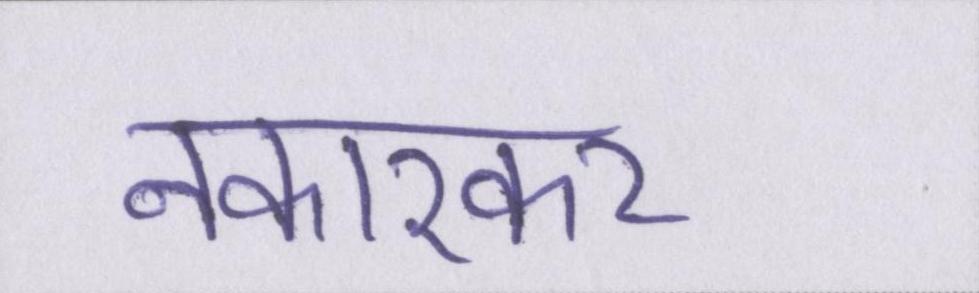 नकारकर